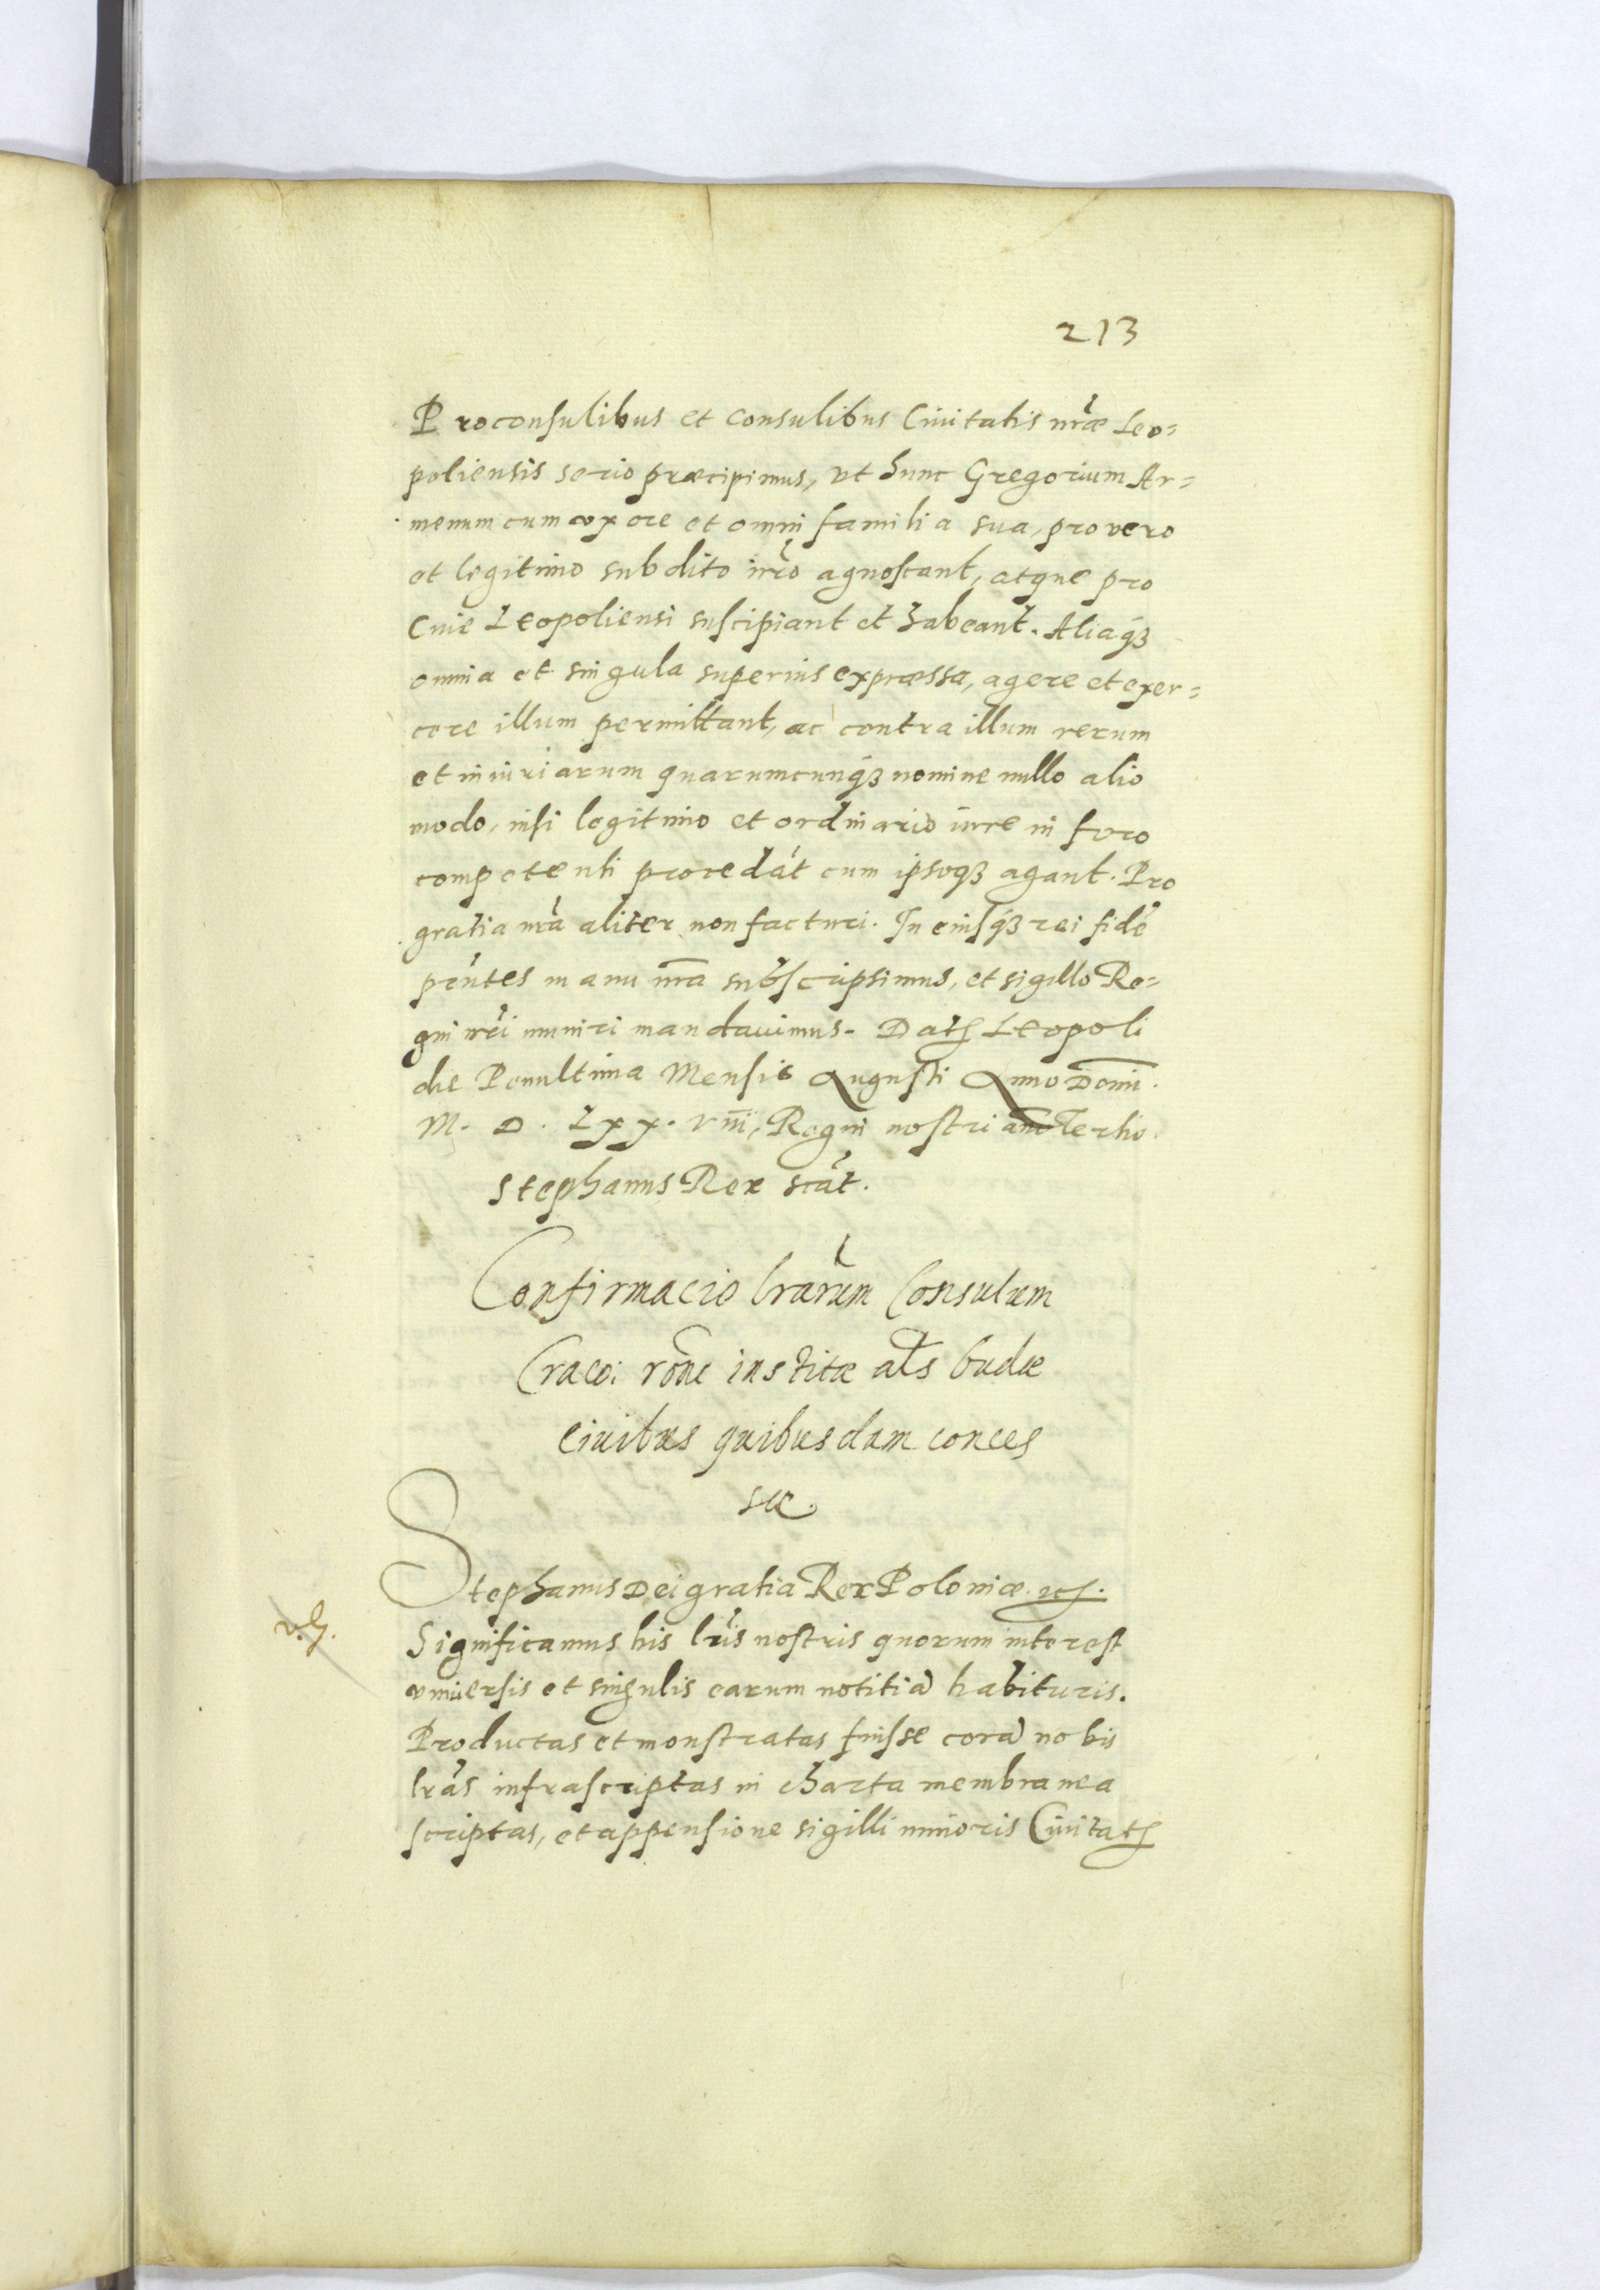 213
Proconsulibus et Consulibus Ciuitatis nr̃æ Leo=
poliensis serio præcipimus, vt hunc Gregorium Ar=
menum cum vxore et omni familia sua, pro vero
et legitimo subdito nr̃o agnoscant, atque pro
Ciue Leopoliensi suscipiant et habeant. Aliaqꝫ
omnia et singula superius expressa, agere et exer=
cere illum permittant, ac contra illum rerum
et iniuriarum quarumcunqꝫ nomine nullo alio
modo, nisi legitimo et ordinario iure in foro
competenti procedãt cum ipsoqꝫ agant. Pro
gratia nr̃a aliter non facturi. In cuiusqꝫ rei fidẽ
pñtes manu nr̃a subscripsimus, et sigillo Re=
gni nr̃i muniri mandauimus. Datꝭ Leopoli
die Penultima Mensis Augusti Anno Domĩ.
M. D. Lxx. viii, Regni nostri año Tertio.
Stephanus Rex scãt.
Confirmacio lr̃arum Consulum
Craco: rõne institæ als̃ budæ
ciuibus quibusdam conces
sæ.
Stephanus Dei gratia Rex Poloniæ. ꝛcꝭ.
Significamus his lr̃is nostris quorum interest
vniuersis et singulis earum notitiã habituris.
Productas et monstratas fuisse corã nobis
lr̃as infrascriptas in charta membranea
scriptas, et appensione sigilli minoris Ciuitatꝭ